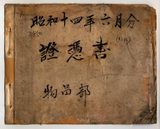 昭和十四年六月分
證憑書
物品部